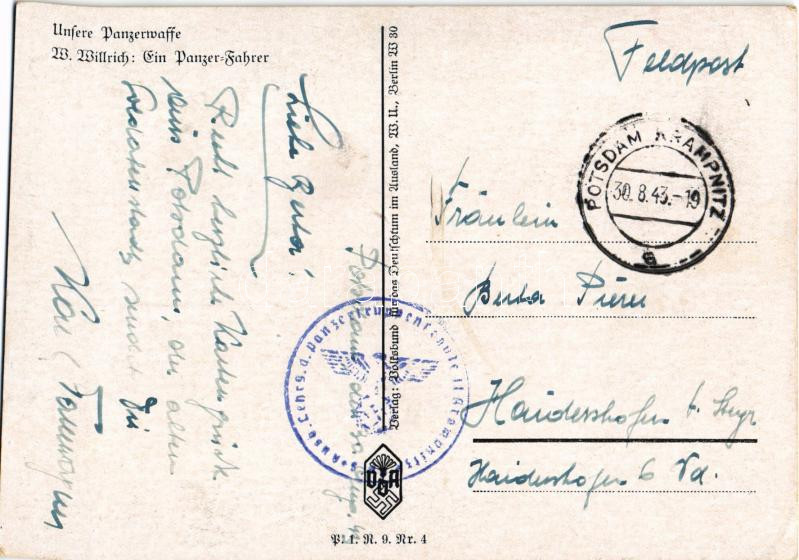 Unsere Panzerwaffe
W. Willrich: Ein Panzer-Fahrer
Liebe Berta!
Recht herzliche Kartengrüße
aus Potsdam, der alten
Soldatenstadt, sendet
Dir
Karl
Potsdam, den 30. Aug. 43
Verlag: Volksbund für das Deutschtum im Ausland, W. U., Berlin W 30
VDA
Pl. R. 9. Nr. 4
Feldpost
POTSDAM KRAMPNITZ
30.8.43.-19
a
Fräulein
Berta
Haidershofen b. Steyr
Haidershofen 6 Nd.